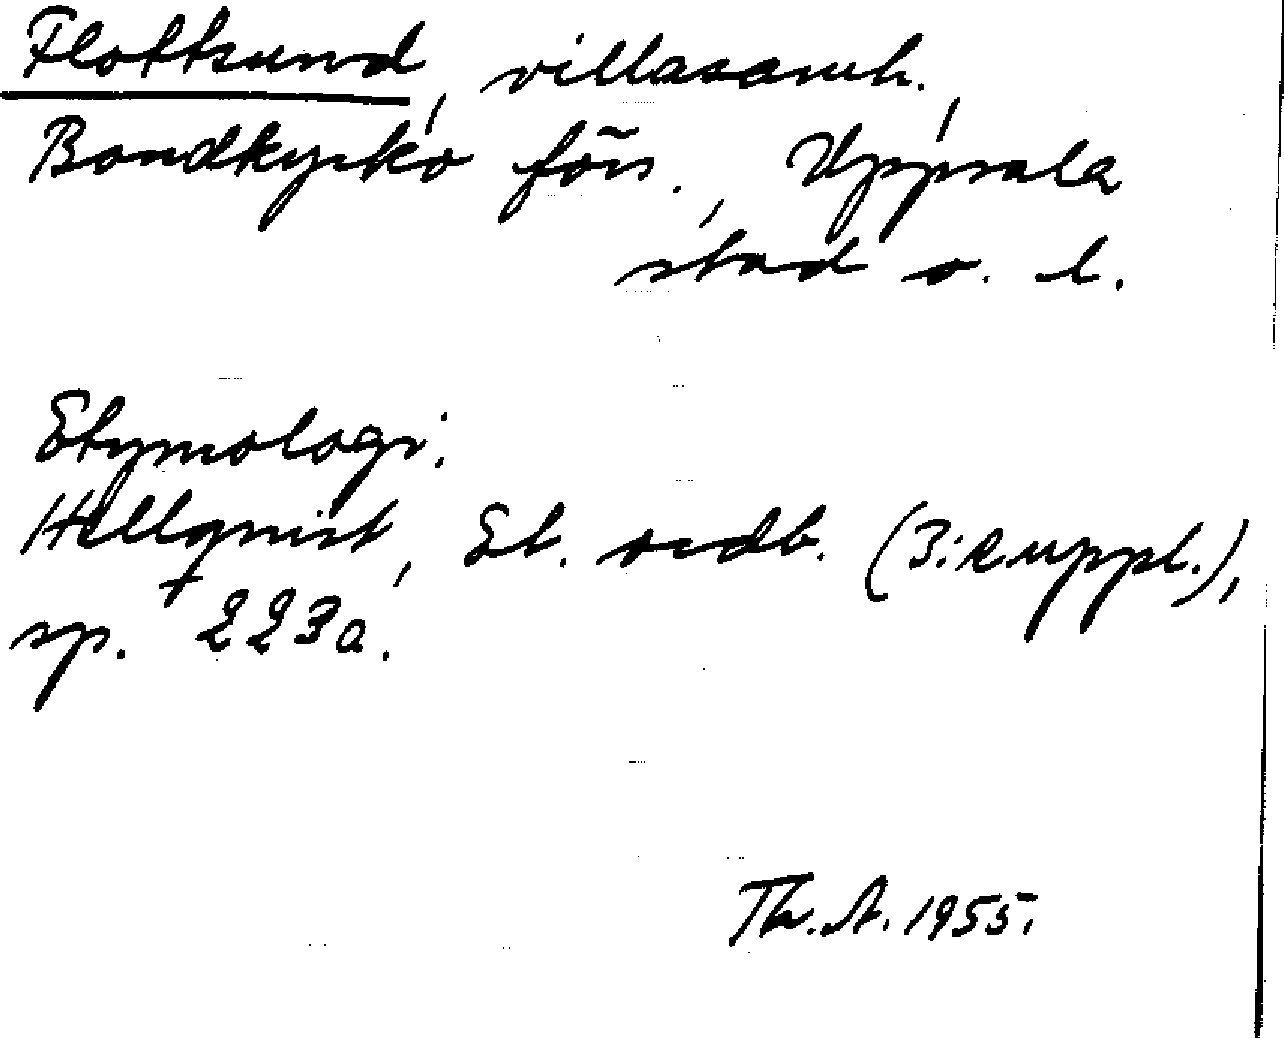 Flotsund, villasamh.,
Bondkyrko förs., Uppsala
stad o. l.
Etymologi:
Hellquist, Et. ordb. (3:e uppl.),
sp. 223a.
Th. A. 1955.